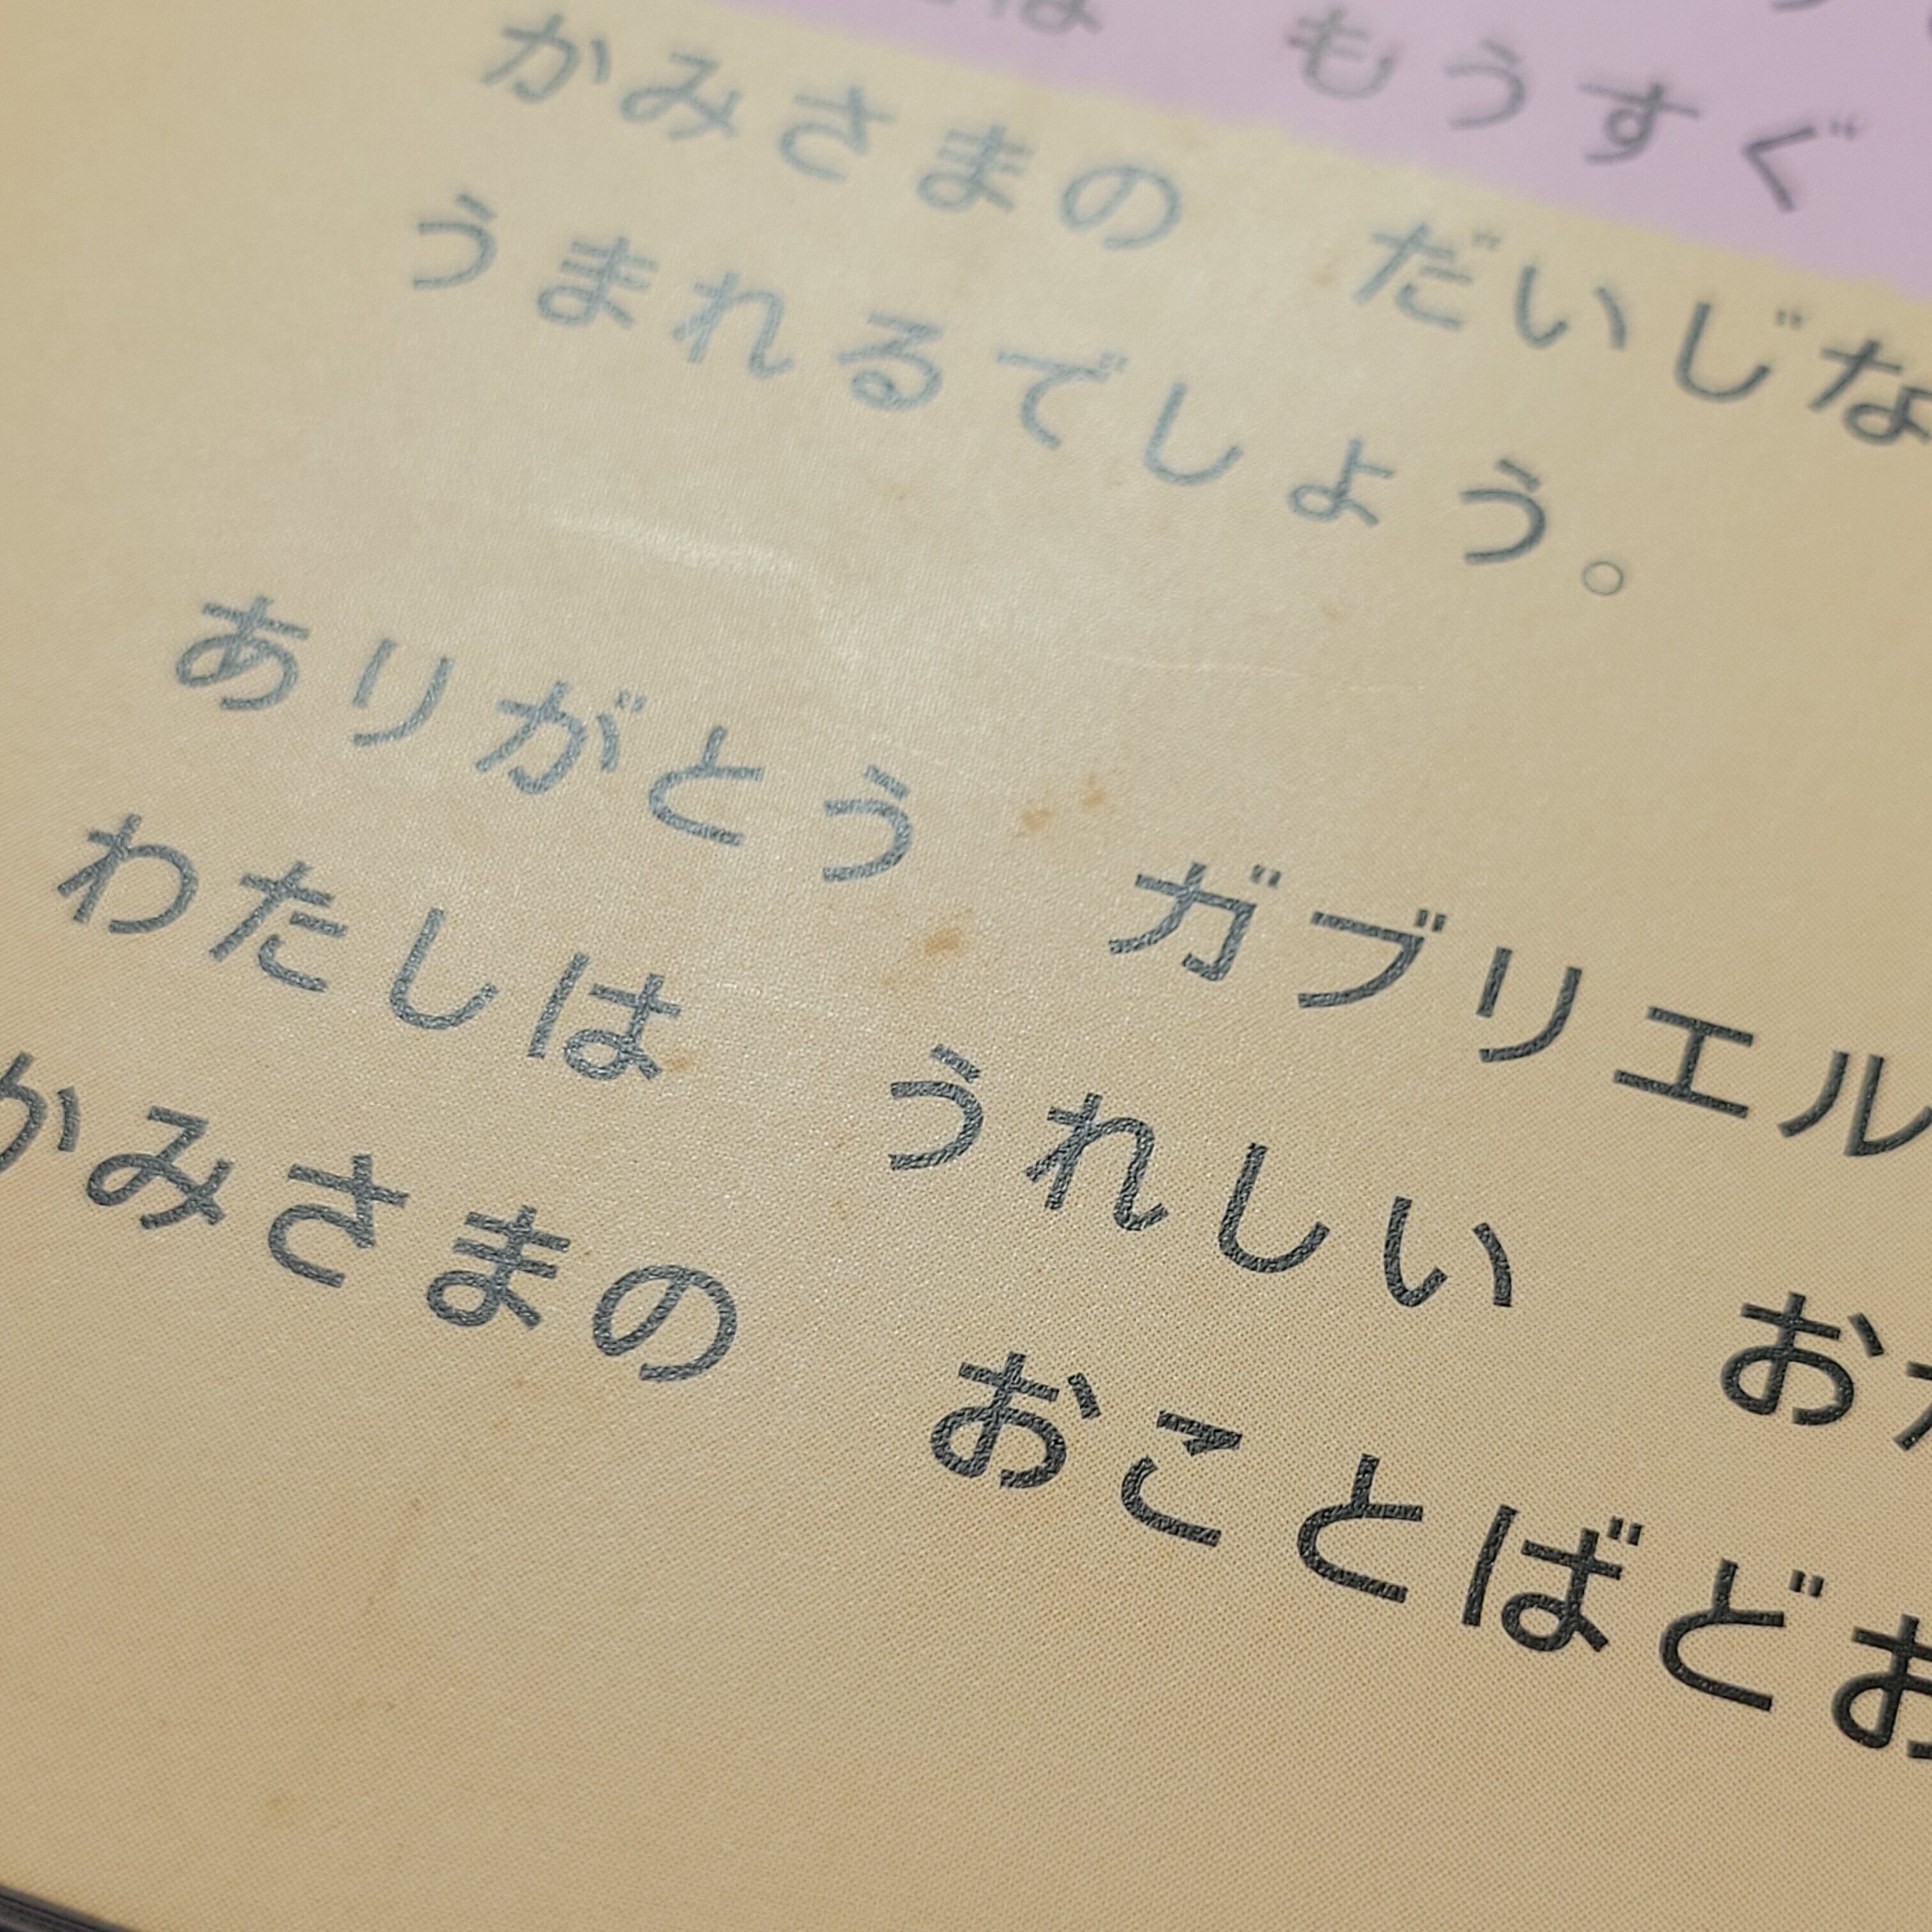 は もうすぐ
かみさまの だいじな
うまれるでしょう。
ありがとう ガブリエル
わたしは うれしい お
かみさまの おことばどお